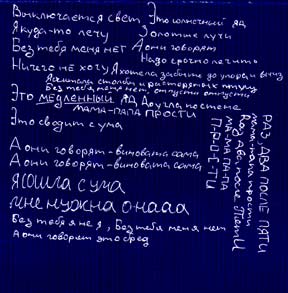 Выключается свет, Это солнечный яд
Я куда-то лечу Золотые лучи
Без тебя меня нет А они говорят
Ничего не хочу Надо срочно лечить
Я хотела забыть до упора и вниз
Я считала столбы и растерянных птиц
Без тебя меня нет, отпусти отпусти
Это медленный яд До угла по стене
МАМА-ПАПА ПРОСТИ
Это сводит с ума
А они говорят-виновата сама
А они говорят-виновата сама
Я сошла с ума
мне нужна онааа
Без тебя я не я, Без тебя меня нет
А они говорят это бред
РАЗ, ДВА ПОСЛЕ ПЯТИ
мама-папа прости
Раз, два, после пяти
МА-МА-ПА-ПА
П-Р-О-С-Т-И